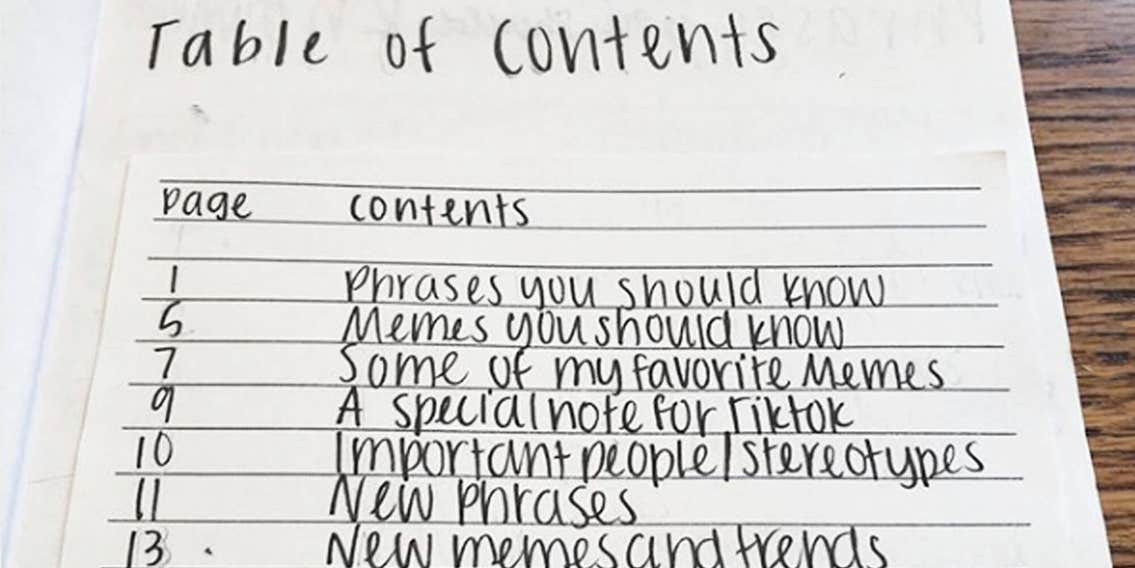 Table of contents
page contents
1 Phrases you should know
5 Memes you should know
7 Some of my favorite Memes
9 A special note for Tiktok
10 Important people/stereotypes
11 New phrases
13 New memes and trends